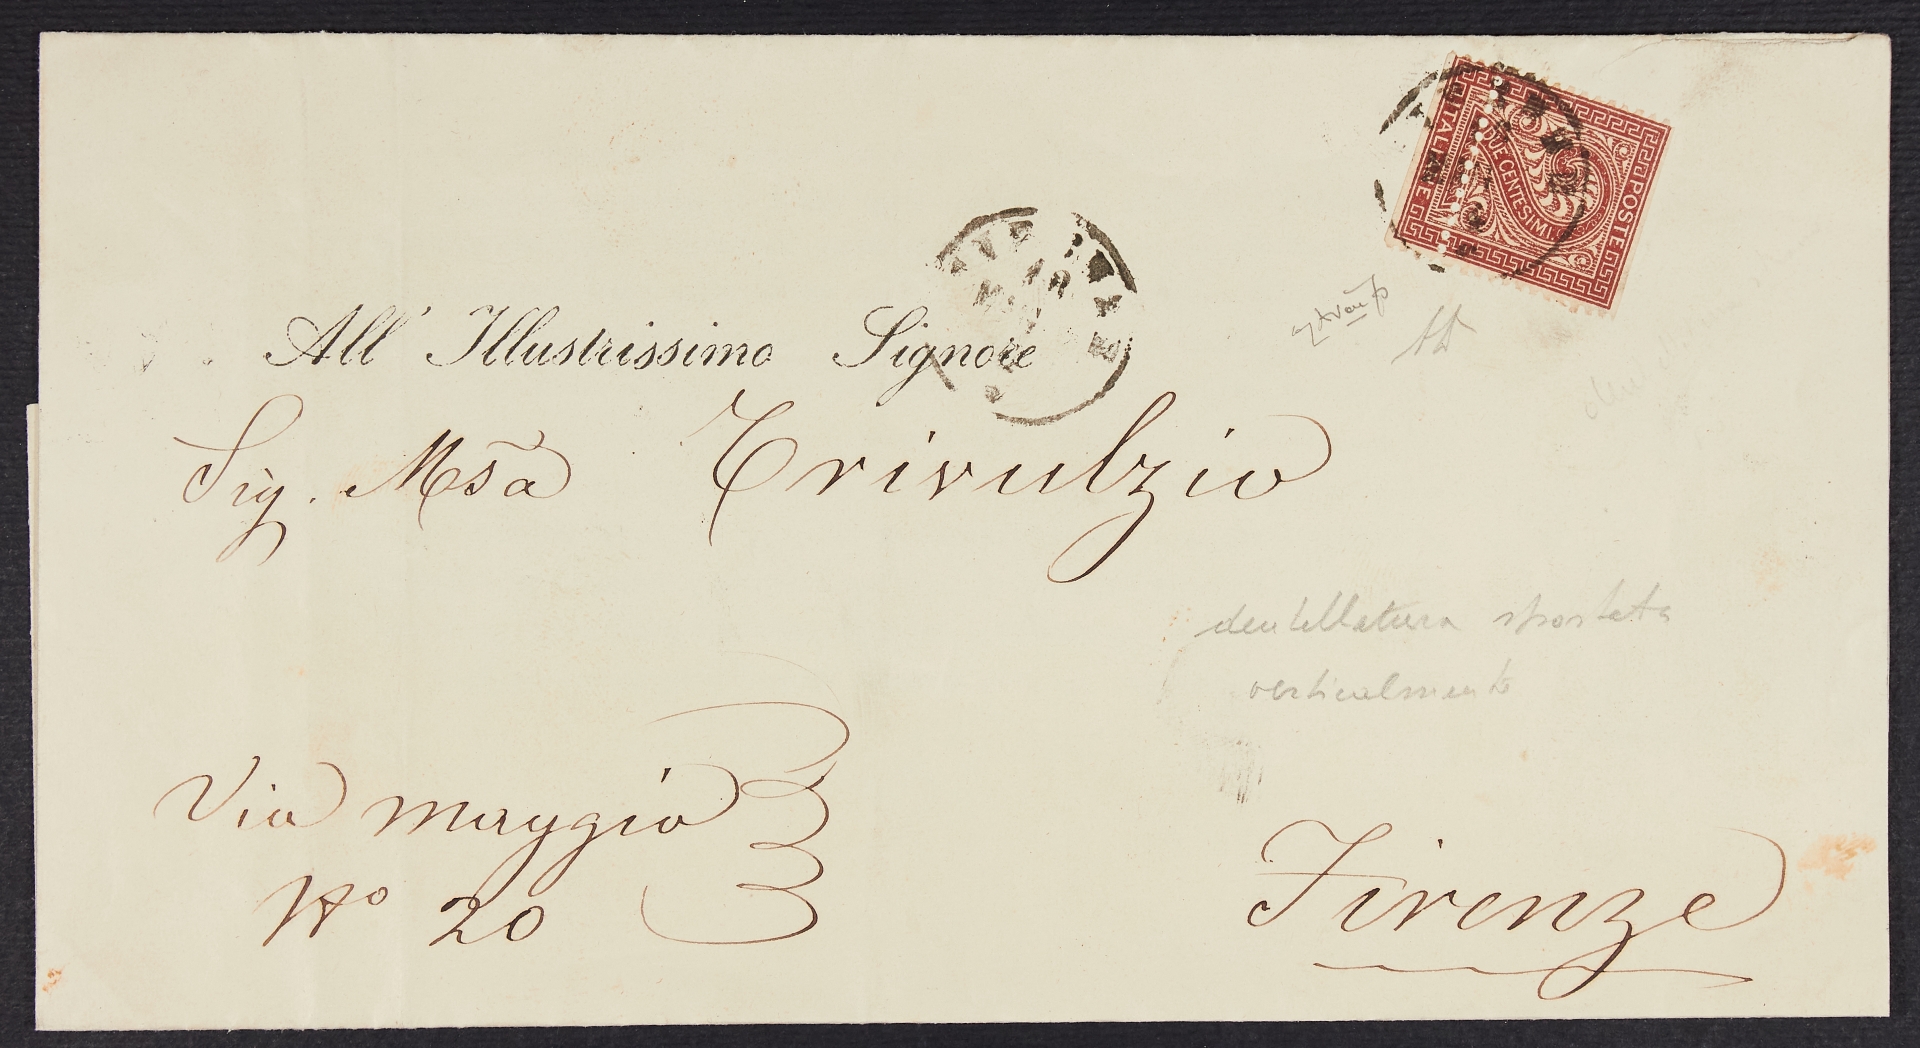 POSTE ITALIANE
DUE CENTESIMI
All' Illustrissimo Signore
Sig. Msã Trivulzio
dentellatura spostata
verticalmente
Via Maggio
No 20
Firenze